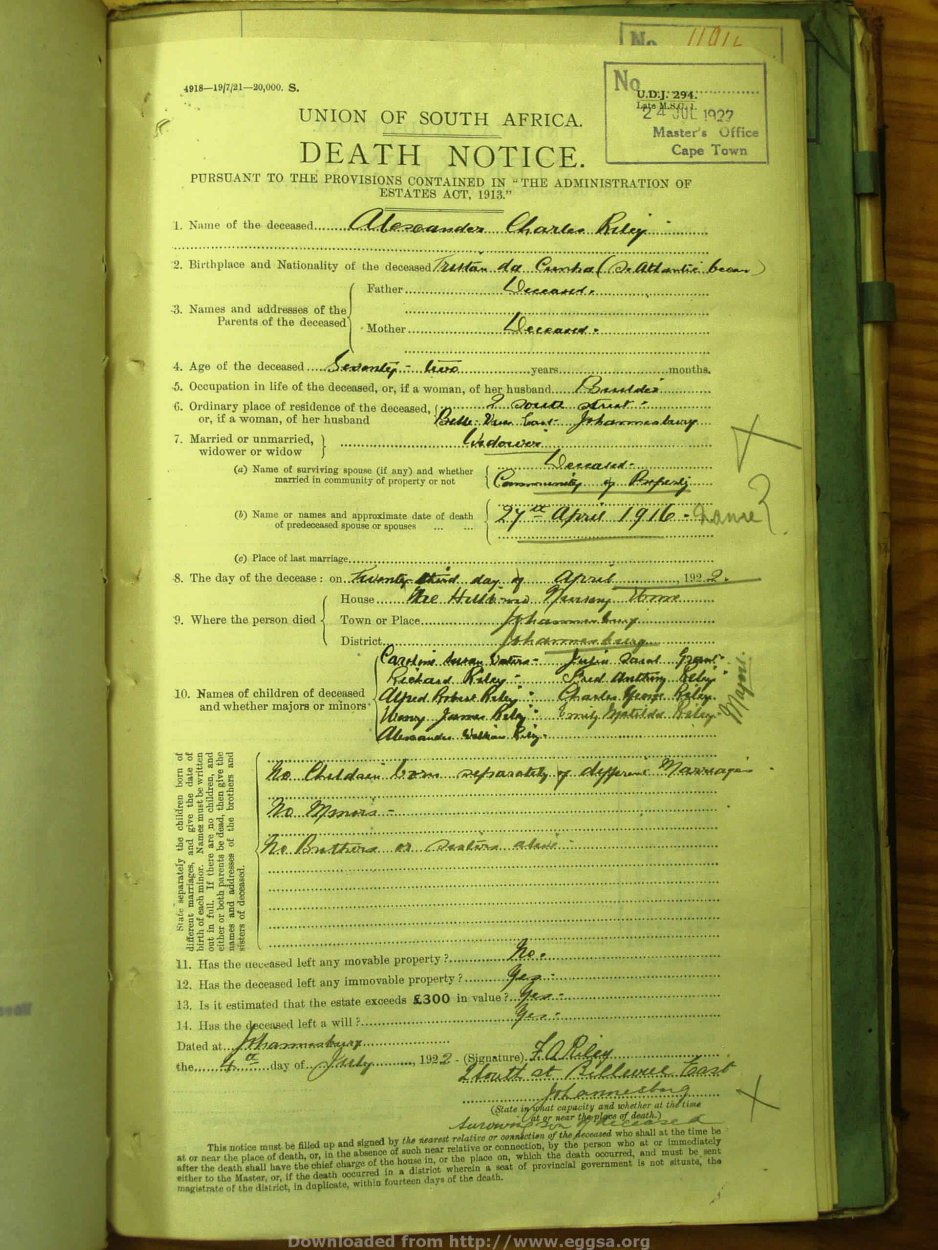 No 11012
4918—19/7/21—20,000. S.
No
U.D.J. 294.
Late M.S.C. 1.
24 JUL 1922
Master's Office
Cape Town
UNION OF SOUTH AFRICA.
DEATH NOTICE.
PURSUANT TO THE PROVISIONS CONTAINED IN "THE ADMINISTRATION OF
ESTATES ACT, 1913."
1. Name of the deceased Alexander Charles Riley
2. Birthplace and Nationality of the deceased Tristan da Cunha (S. Atlantic Ocean)
3. Names and addresses of the Parents of the deceased
Father Deceased.
Mother Deceased.
4. Age of the deceased Seventy-two years months.
5. Occupation in life of the deceased, or, if a woman, of her husband Builder
6. Ordinary place of residence of the deceased, or, if a woman, of her husband
2 South Street
East Johannesburg
7. Married or unmarried, widower or widow Widower
(a) Name of surviving spouse (if any) and whether married in community of property or not
Deceased
Community of Property
(b) Name or names and approximate date of death of predeceased spouse or spouses
27th April 1916 -
(c) Place of last marriage
8. The day of the decease: on Twenty third day of April, 1922.
9. Where the person died
House Nursing Home
Town or Place Johannesburg
District Johannesburg
10. Names of children of deceased and whether majors or minors
Caroline Susan - Julia Sarah
Richard Riley - Fred Anthony Riley
Alfred Robert Riley - Charles George Riley
Henry James Riley - Emily Matilda Riley
Alexander William Riley.
Majors.
State separately the children born of
different marriages, and give the date of
birth of each minor. Names must be written
out in full. If there are no children, and
either or both parents be dead, then give the
names and addresses of the brothers and
sisters of deceased.
No Children born separately of different Marriages
No Minors -
No Brothers or Sisters alive
11. Has the deceased left any movable property? No.
12. Has the deceased left any immovable property? Yes
13. Is it estimated that the estate exceeds £300 in value? Yes
14. Has the deceased left a will? Yes
Dated at Johannesburg
the 4th day of July, 1922 - (Signature) F. A Riley
2 South St Bellevue East
Johannesburg
(State in what capacity and whether at the time
at or near the place of death.)
son of deceased
This notice must be filled up and signed by the nearest relative or connection of the deceased who shall at the time be
at or near the place of death, or, in the absence of such near relative or connection, by the person who at or immediately
after the death shall have the chief charge of the house in, or the place on, which the death occurred, and must be sent
either to the Master, or, if the death occurred in a district wherein a seat of provincial government is not situate, the
magistrate of the district, in duplicate, within fourteen days of the death.
Downloaded from http://www.eggsa.org